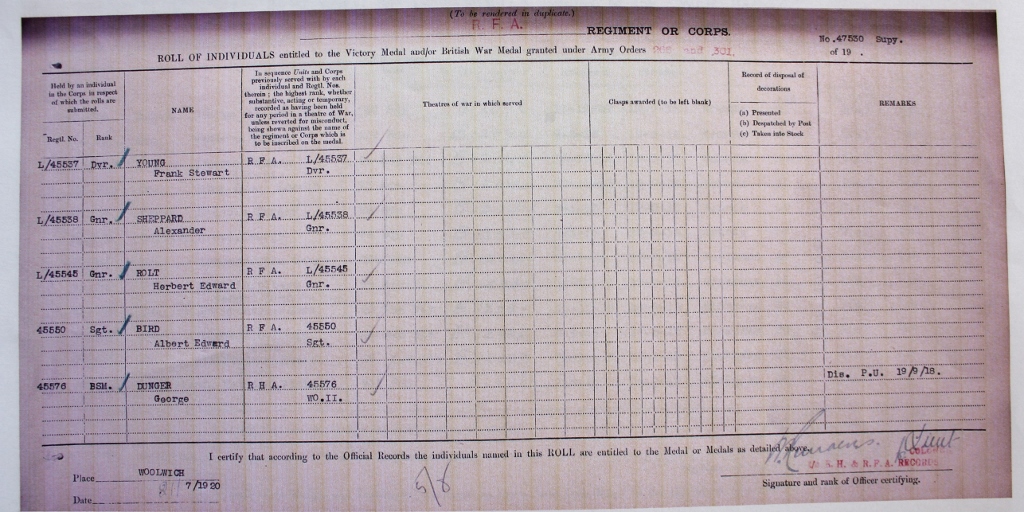 (To be rendered in duplicate.)
R. F. A.
REGIMENT OR CORPS.
No. 47530 Supy.
ROLL OF INDIVIDUALS entitled to the Victory Medal and/or British War Medal granted under Army Orders 301.
of 19 .
Held by an individual
in the Corps in respect
of which the rolls are
submitted.
Regtl. No.
Rank
NAME
In sequence Units and Corps
previously served with by each
individual and Regtl. Nos.
therein; the highest rank, whether
substantive, acting or temporary,
recorded as having been held
for any period in a theatre of War,
unless reverted for misconduct,
being shown against the name of
the regiment or Corps which is
to be inscribed on the medal.
Theatres of war in which served
Clasps awarded (to be left blank)
Record of disposal of
decorations
(a) Presented
(b) Despatched by Post
(c) Taken into Stock
REMARKS
L/45537 Dvr. YOUNG R F A. L/45537
Frank Stewart Dvr.
L/45538 Gnr. SHEPPARD R F A. L/45538
Alexander Gnr.
L/45545 Gnr. ROLT R F A. L/45545
Herbert Edward Gnr.
45550 Sgt. BIRD R F A. 45550
Albert Edward Sgt.
Dis. P.U. 19/9/18.
45576 BSM. DUNGER R H A. 45576
George WO.II.
I certify that according to the Official Records the individuals named in this ROLL are entitled to the Medal or Medals as detailed above.
R.H. & R.F.A. RECORDS
Place WOOLWICH
7/1920
Date
5/6
Signature and rank of Officer certifying.